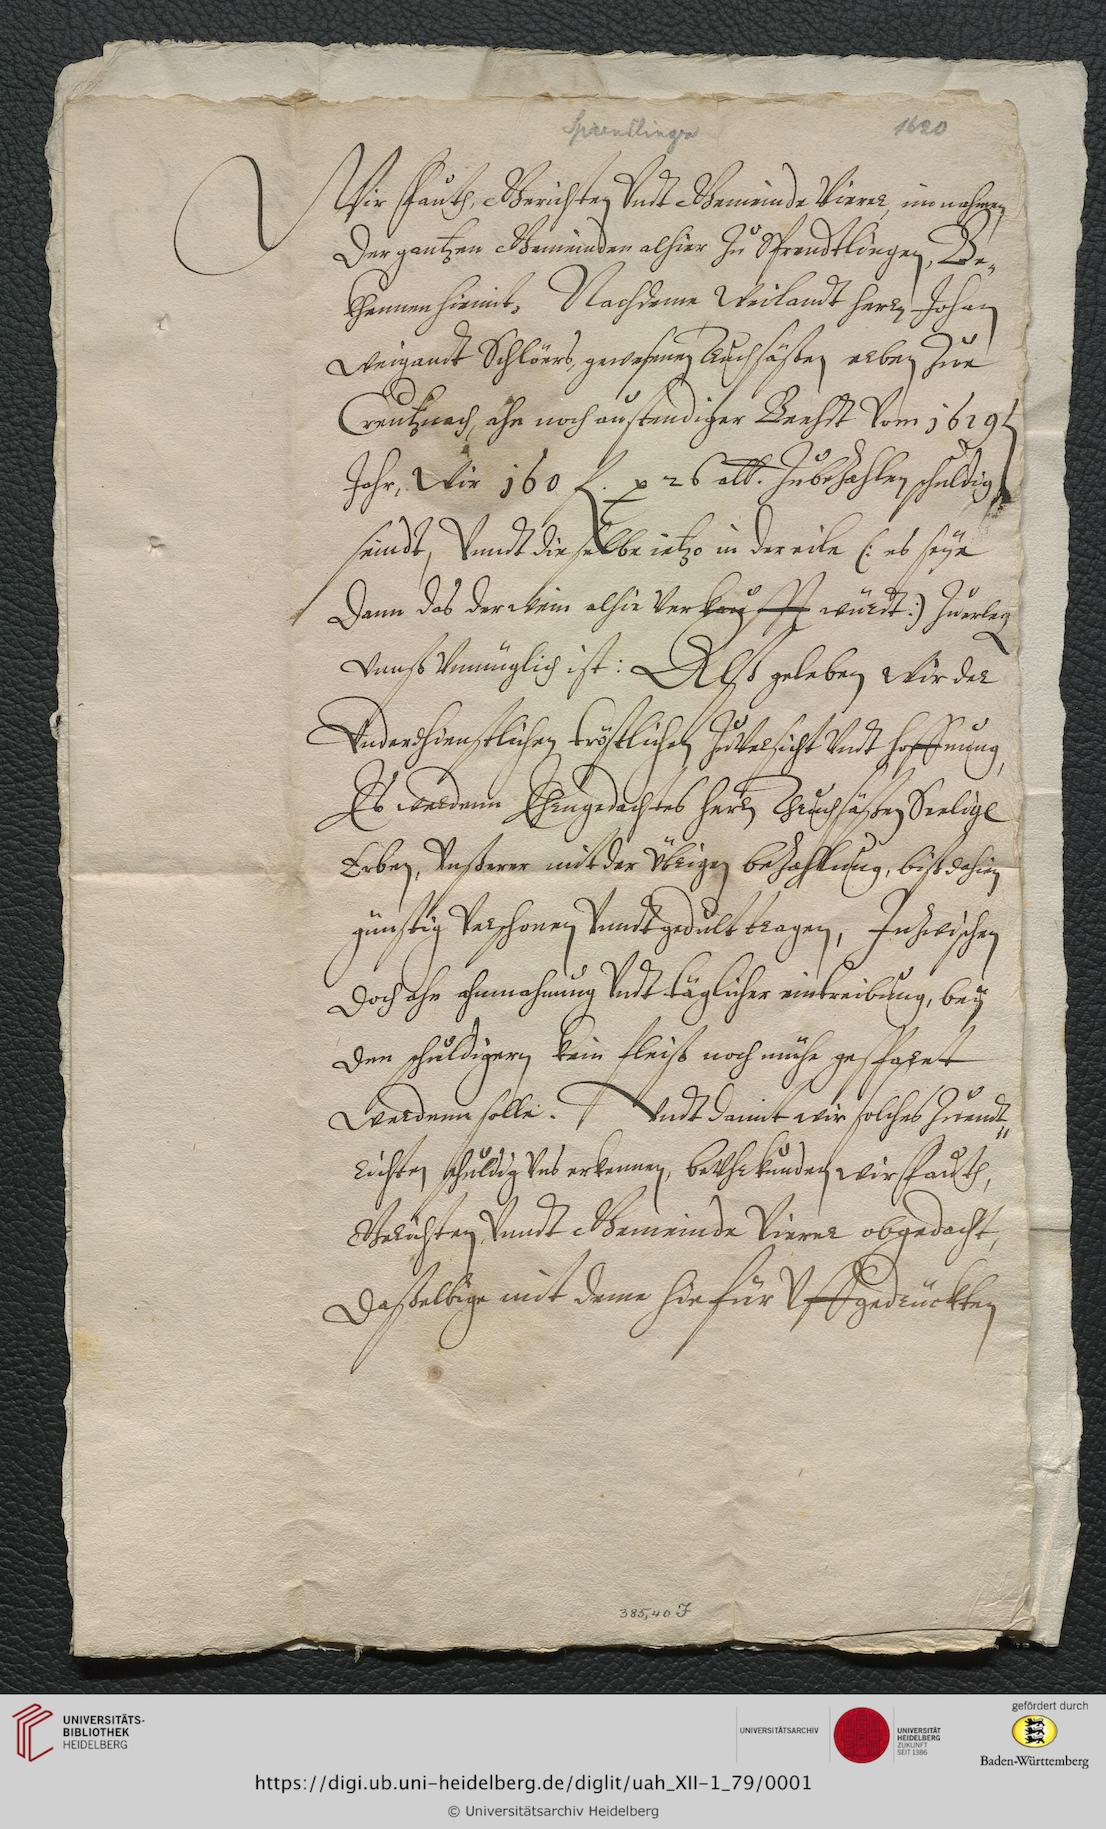 Sprendlingen 1620
Wir Fauth, Gerichten Undt Gemeinde Vierer, im nahmen
Der gantzen Gemeinden alhier Zu Sprendtlingen, Be-
khennen hiemit, Nachdeme Weilandt herrn Johan
Weigandt Schlöers, gewesenen Truchsäßen erben Zue
Creutznach, ahn noch austendiger Beeht Vom 1619t
Jahr, Wir 160 f. p 26 alb. Zubezahlen schuldig
seindt, Unndt dieselbe ietzo in der eile (: es seye
Dann das der wein alhie Verkaufft würdt:) Zuerleg
Unnß Unmüglich ist: Alß geleben Wir der
Underdhienstlichen tröstlichen Zuversicht Undt hoffnung,
Es werdenn Ehrngedachtes herrn Truchsäßen Seelige
Erben, Unßerer mit der Übrigen bezahlung, biß dahien
günstig Verschonen Unndt gedult tragen, Inzwischen
Doch ahn ahnmahnung Undt täglicher eintreibung, bey
den schuldigern kein fleiß noch mühe gesparet
Werdenn solle. Undt damit wir solches Zuendt-
richten schuldig Uns erkennen, beUhrkunden wir Fauth,
Gerichten Unndt Gemeinde Vierer obgedacht,
Daßelbige mit deme hiefür Uffgedrückten
385,40 F
UNIVERSITÄTS-
BIBLIOTHEK
HEIDELBERG
UNIVERSITÄTSARCHIV
UNIVERSITÄT
HEIDELBERG
ZUKUNFT
SEIT 1386
gefördert durch
Baden-Württemberg
https://digi.ub.uni-heidelberg.de/diglit/uah_XII-1_79/0001
© Universitätsarchiv Heidelberg